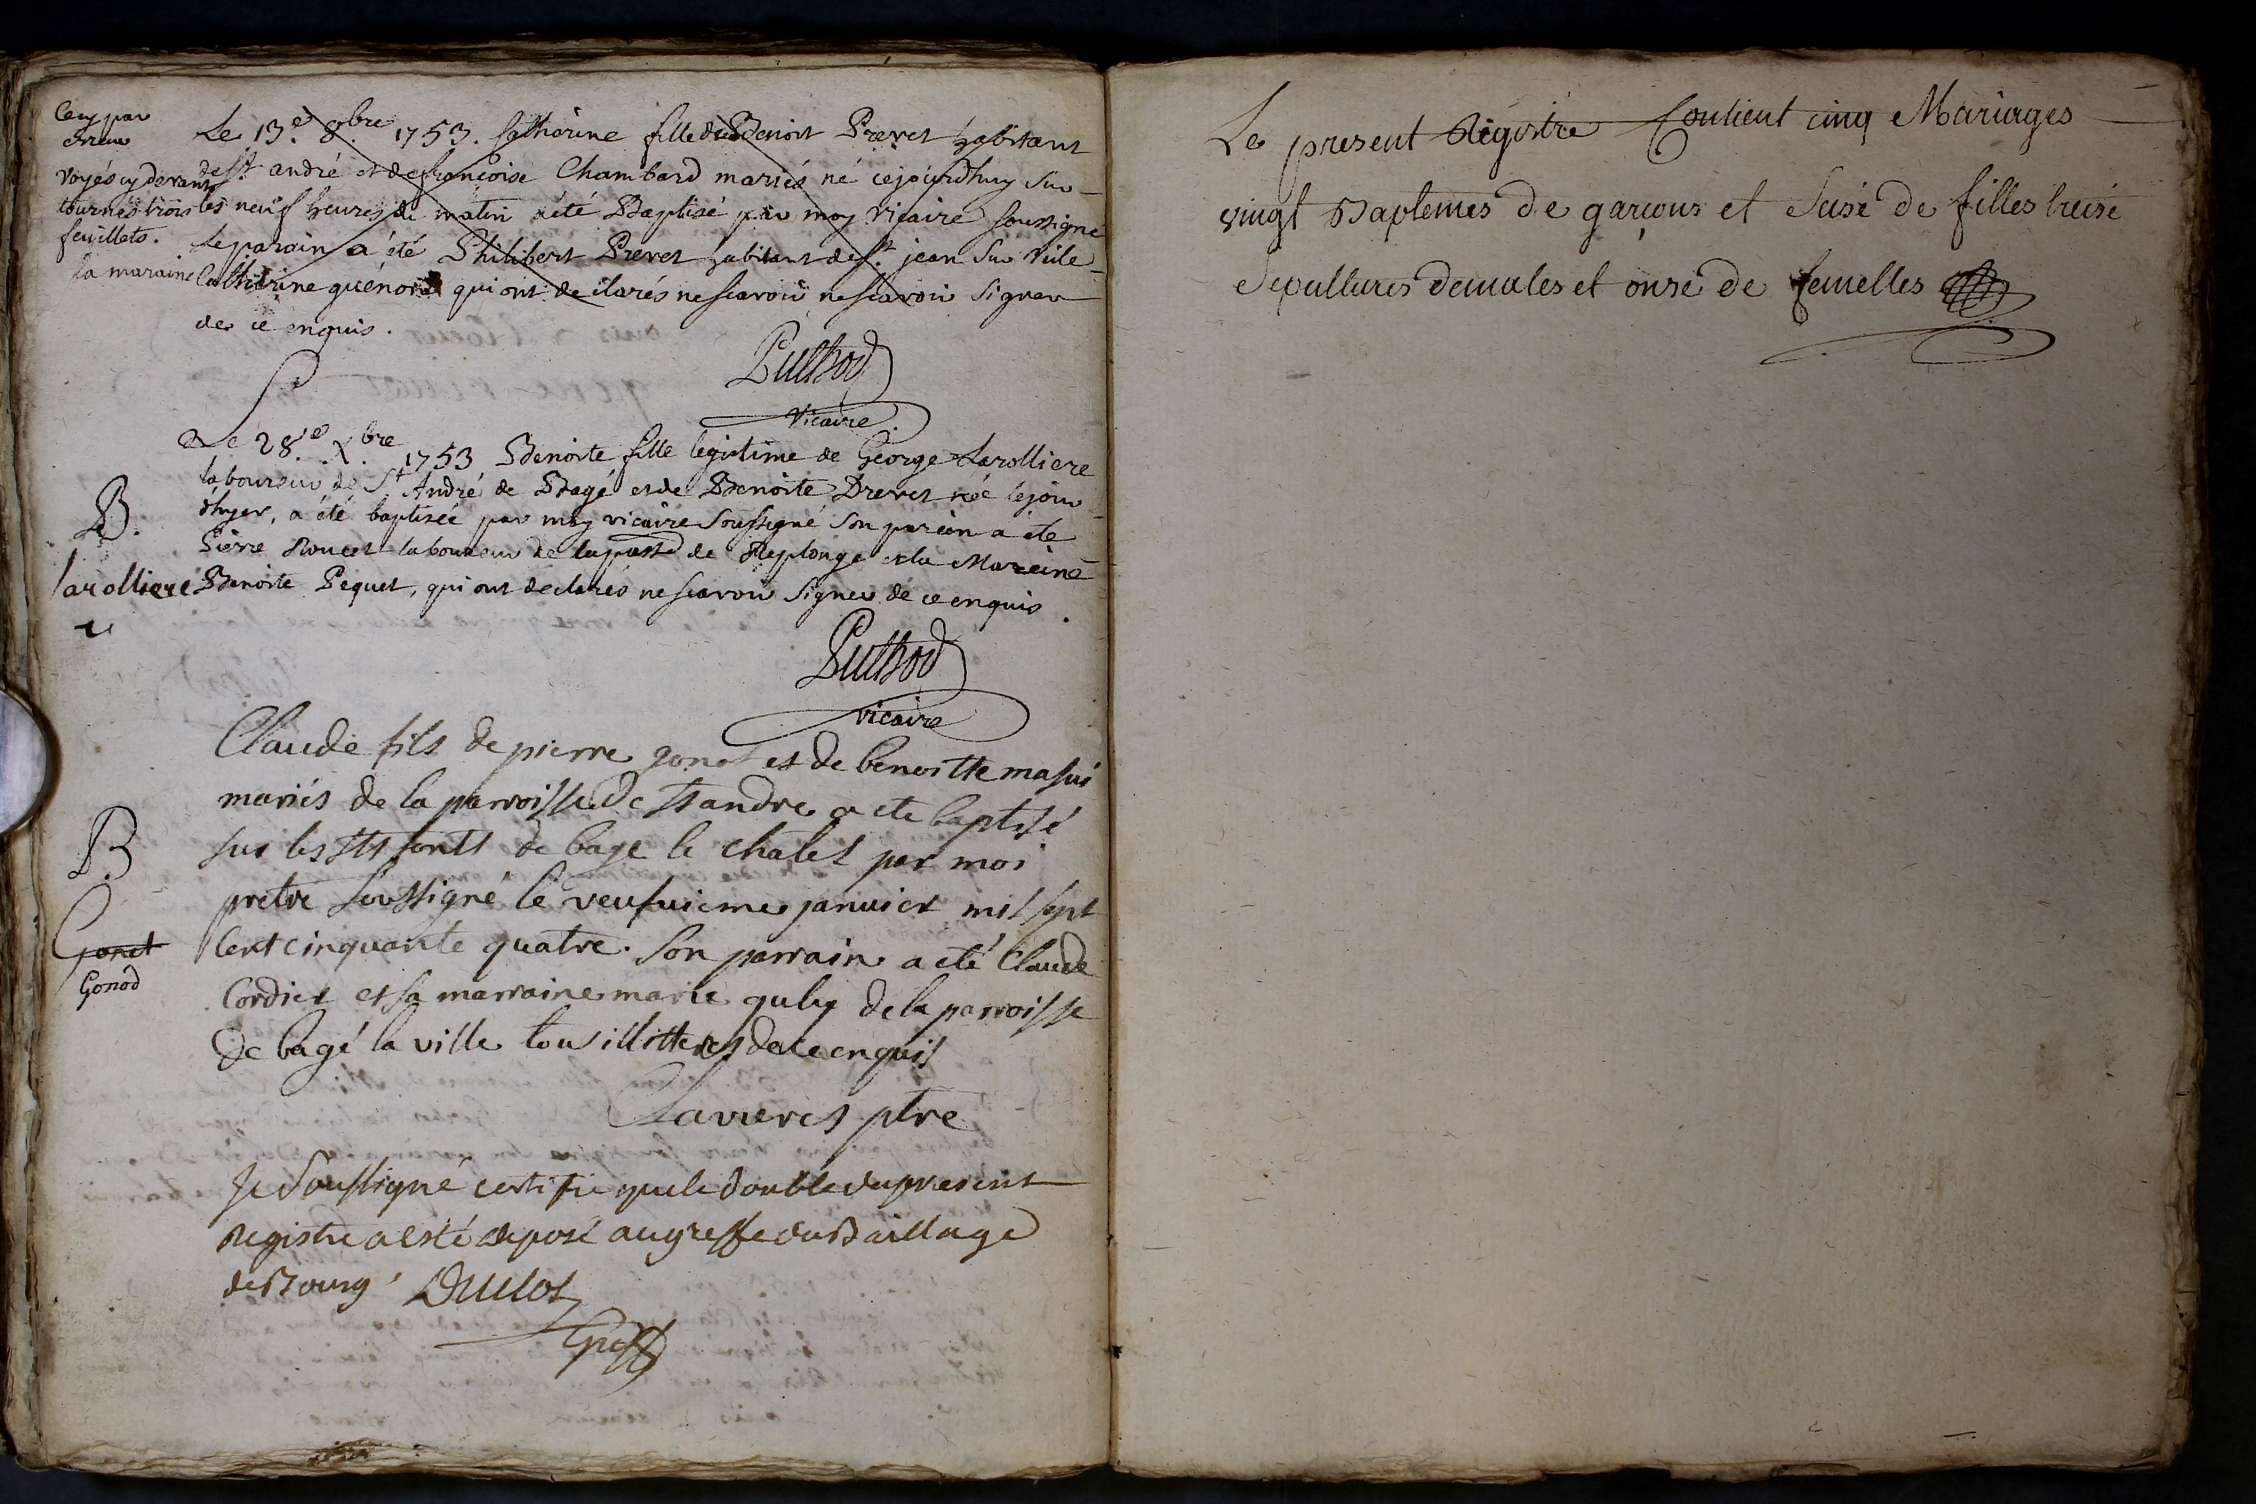 Cecy par
erreur
voyés cy devant
tournés trois
feuillets.
Le 13.e 8.bre 1753. Catharine fille de Benoit Prevet habitant
de St. andré et de françoise Chambard mariés né cejourdhuy sur
les neuf heures du matin a été Baptisé par moy vicaire soussigné
Le parain a été Philibert Prevet habitant de St. jean sur Veile
la maraine Catherine guénoi qui ont declarés ne scavoir ne scavoir signer
de ce enquis.
Puthod
vicaire.
Le 28.e X.bre 1753 Benoite fille legitime de George Larolliere
laboureur de St André de Bagé et de Benoite Drevet née le jour
d'hyer, a été baptisée par moy vicaire soussigné son parain a été
Pierre Rouset laboureur de la parsse de Replonge et la Mareine
Benoite Pequet, qui ont declarés ne scavoir signer de ce enquis.
B.
larolliere
Puthod
vicaire
Claude fils de pierre gonot et de benoitte masui
mariés de la parroisse de St andre a ete baptisé
sur les Sts fonts de bage le chatel par moi
pretre soussigné le neufuieme janvier mil sept
Cent cinquante quatre. Son parrain a été Claude
Cordier et sa marraine marie guby de la parroisse
de bagé la ville tou illitteres de ce enquis
B
Gonet
Gonod
Lavieres ptre
Je soussigné certifie que le double du present
Registre a esté deposé au greffe du Baillage
de Bourg Duclos
Greff
Le present Régistre Contient cinq Mariages
vingt Baptemes de garçons et seise de filles treise
Sepultures de males et onse de femelles